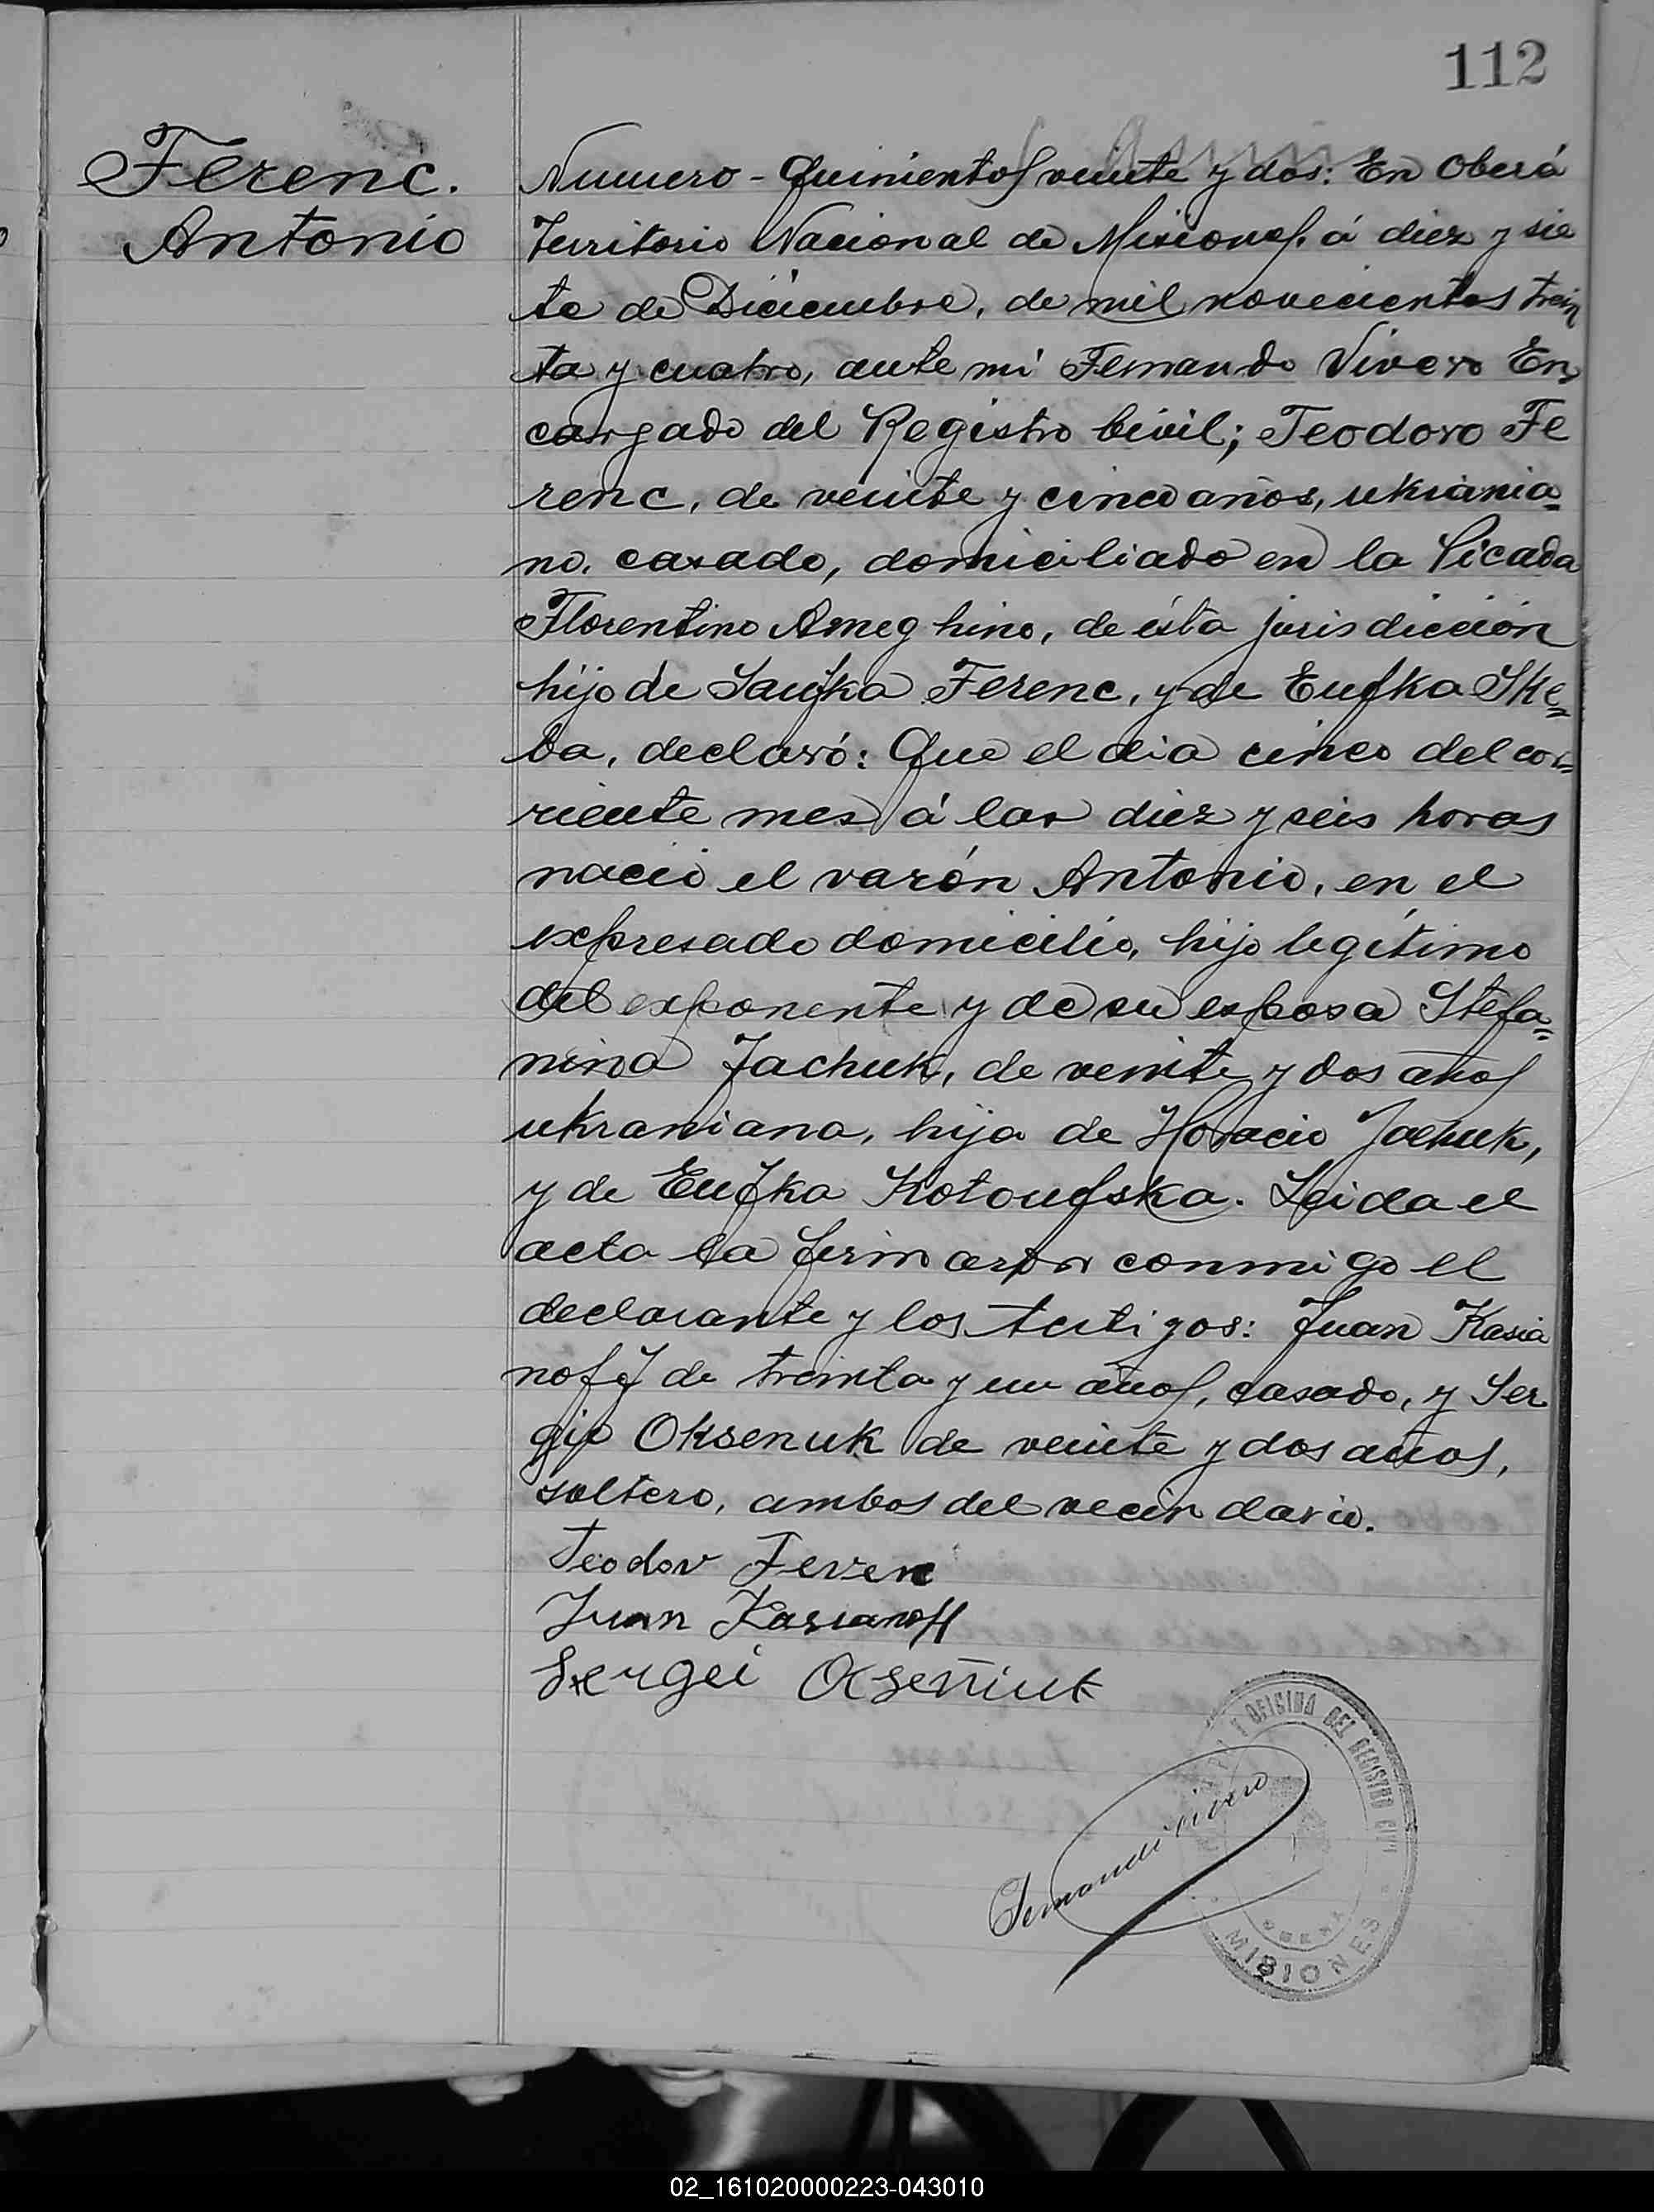 112
Ferenc.
Antonio
Numero - Quinientos veinte y dos: En Oberá
Territorio Nacional de Misiones, á diez y sie
te de Diciembre, de mil novecientos trein
ta y cuatro, ante mi Fernando Vivero En
cargado del Registro Civil; Teodoro Fe
renc, de veinte y cinco años, ukrania=
no, casado, domiciliado en la Picada
Florentino Ameghino, de ésta jurisdicción
hijo de Saufka Ferenc, y de Eufka Ske=
ba, declaró: Que el dia cinco del cor=
riente mes á las diez y seis horas
nació el varón Antonio, en el
expresado domicilio, hijo legítimo
del exponente y de su esposa Stefa=
nina Jachuk, de veinte y dos años
ukraniana, hija de Horacio Jachuk,
y de Eufka Kotoufska. Leida el
acta la firmaron conmigo el
declarante y los testigos: Juan Kasia
noff de treinta y un años, casado, y Ser
gio Oksenuk de veinte y dos años,
soltero, ambos del vecindario.
Teodor Ferenc
Juan Kasianoff
Sergei Okseniuk
OFICINA DEL REGISTRO CIVIL
MISIONES
Fernando Vivero
02_161020000223-043010